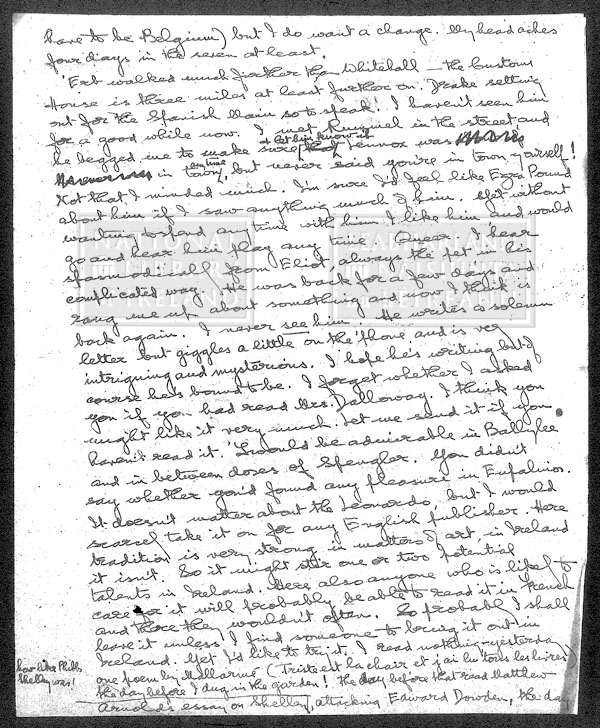 have to be Belgium) but I do want a change. My head aches
four days in the seven at least.
'Erb walked much further than Whitehall – the Customs
House is three miles at least further on. Drake setting
out for the Spanish Main so to speak! I haven't seen him
for a good while now. I met Rummel in the street and
he begged me to make sure & let him know if Lennox was
in town, anytime, but never said you're in town yourself!
Not that I minded much. I'm sure I'd feel like Ezra Pound
about him if I saw anything much of him. Yet without
wanting to spend any time with him I like him and would
go and hear him play any time anywhere. I hear
spasmodically from Eliot, always the pet in his
complicated way. He was back for a few days and
rang me up about something and now I think is
back again. I never see him. He writes a solemn
letter but giggles a little on the 'phone and is very
intriguing and mysterious. I hope he's writing but of
course he's bound to be. I forget whether I asked
you if you had read Mrs. Dalloway. I think you
might like it very much. Let me send it if you
haven't read it. 'Twould be admirable in
and in between doses of Spengler. You didn't
say whether you'd found any pleasure in Eupalinos.
It doesn't matter about the Leonardo, but I would
scarcely take it on for any English publisher. Here
tradition is very strong in matters of art, in Ireland
it isn't. So it might stir one or two potential
talents in Ireland. Here also anyone who is likely to
care for it will probably be able to read it in French
and there they wouldn't often. So probably I shall
leave it unless I find someone to bring it out in
Ireland. Yet I'd like to try it. I read nothing yesterday
one poem by Mallarmé (Triste est la chair et j'ai lu tous les livres)
the day before I dug in the garden! the day before that read Matthew
Arnold's essay on Shelley, attacking Edward Dowden, the day
how like Phibbs
Shelley was!
NATIONAL LIBRARY OF IRELAND
LEABHARLANN NÁISIÚNTA NA hÉIREANN